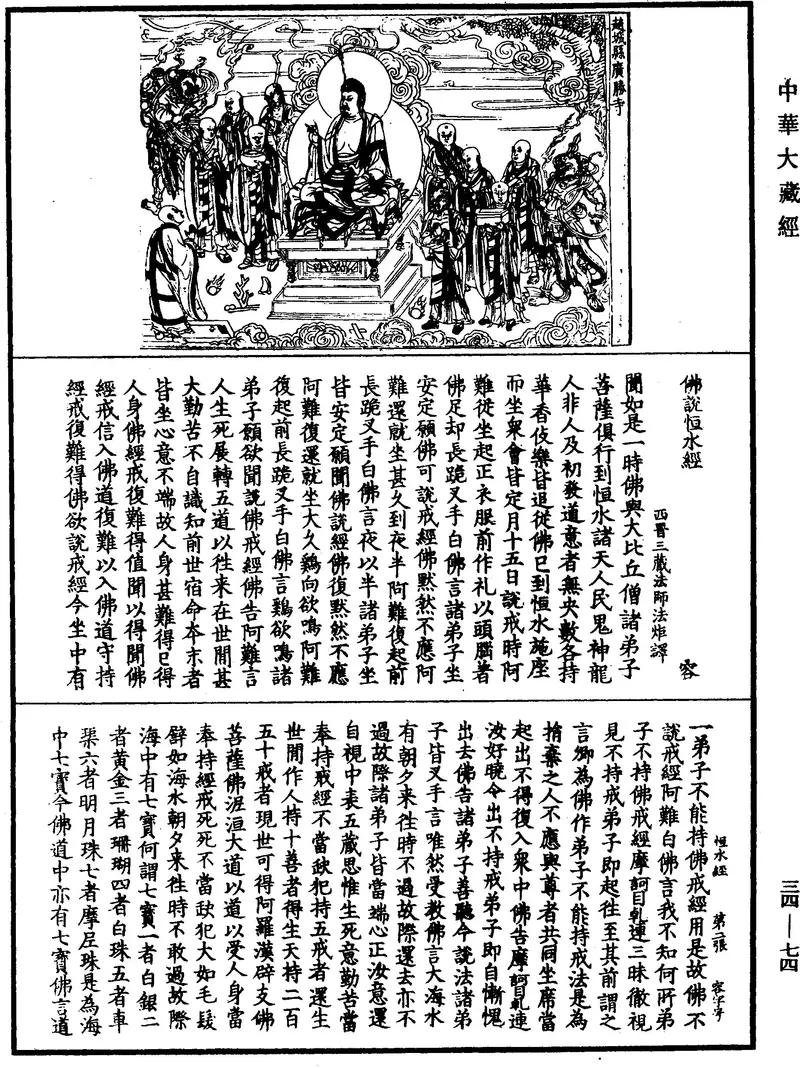 中華大藏經
趙城縣廣勝寺
佛說恒水經
西晋三藏法師法炬譯
容
聞如是一時佛與大比丘僧諸弟子
菩薩俱行到恒水諸天人民鬼神龍
人非人及初發道意者無央數各持
華香伎樂皆追從佛已到恒水施座
而坐衆會皆定月十五日說戒時阿
難從坐起正衣服前作礼以頭腦著
佛足却長跪叉手白佛言諸弟子坐
安定願佛可說戒經佛默然不應阿
難還就坐甚久到夜半阿難復起前
長跪叉手白佛言夜以半諸弟子坐
皆安定願聞佛說經佛復默然不應
阿難復還就坐大久鷄向欲鳴阿難
復起前長跪叉手白佛言鷄欲鳴諸
弟子願欲聞說佛戒經佛告阿難言
人生死展轉五道以往来在世間甚
大勤苦不自識知前世宿命本末者
皆坐心意不端故人身甚難得已得
人身佛經戒復難得值聞以得聞佛
經戒信入佛道復難以入佛道守持
經戒復難得佛欲說戒經今坐中有
恒水經 第二張 容字号
一弟子不能持佛戒經用是故佛不
說戒經阿難白佛言我不知何所弟
子不持佛戒經摩訶目乹連三昧徹視
見不持戒弟子即起往至其前謂之
言卿為佛作弟子不能持戒法是為
捐棄之人不應與尊者共同坐席當
起出不得復入衆中佛告摩訶目乹連
汝好曉令出不持戒弟子即自慚愧
出去佛告諸弟子善聽今說法諸弟
子皆叉手言唯然受教佛言大海水
有朝夕来往時不過故際還去亦不
過故際諸弟子皆當端心正汝意還
自視中表五藏思惟生死意勤苦當
奉持戒經不當缺犯持五戒者還生
世間作人持十善者得生天持二百
五十戒者現世可得阿羅漢辟支佛
菩薩佛泥洹大道以道以受人身當
奉持經戒死死不當缺犯大如毛髮
譬如海水朝夕来往時不敢過故際
海中有七寶何謂七寶一者白銀二
者黄金三者珊瑚四者白珠五者車
𤦲六者明月珠七者摩尼珠是為海
中七寶今佛道中亦有七寶佛言道
三四—七四